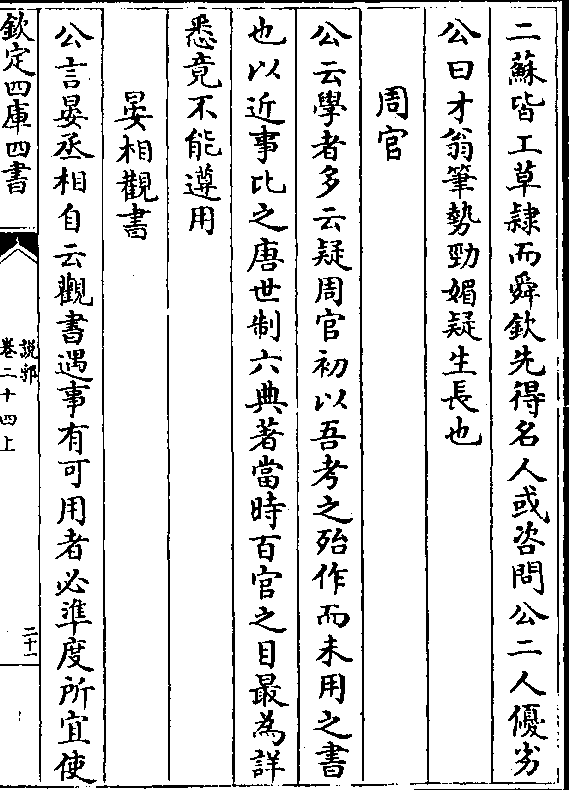 二蘇皆工草隸而舜欽先得名人或咨問公二人優劣
公曰才翁筆勢勁媚疑生長也
周官
公云學者多云疑周官初以吾考之殆作而未用之書
也以近事比之唐世制六典著當時百官之目最為詳
悉竟不能遵用
晏相觀書
公言晏丞相自云觀書遇事有可用者必準度所宜使
欽定四庫四書
說郛
卷二十四上
二十一